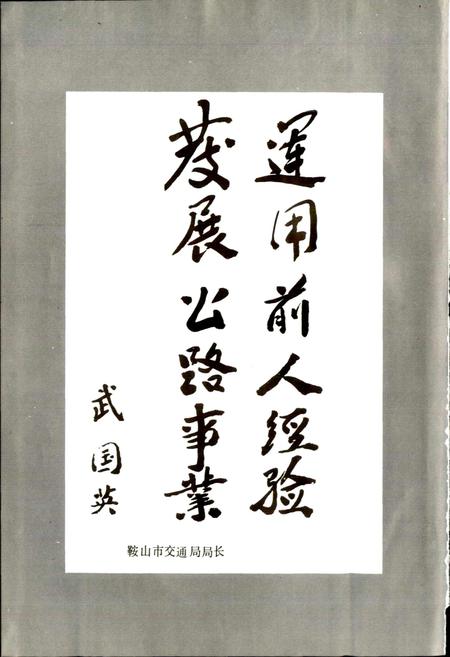 運用前人經验
發展公路事業
武国英
鞍山市交通局局长